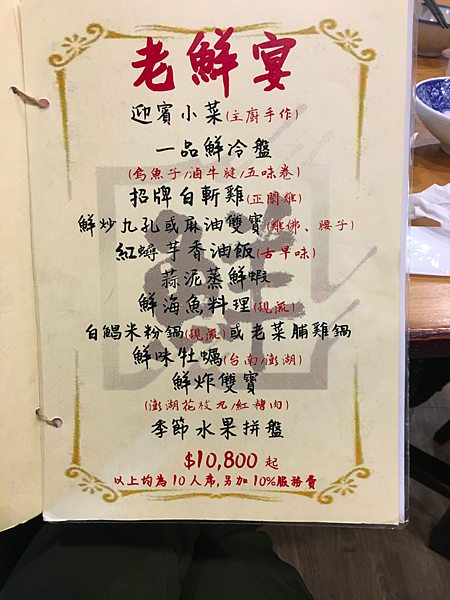 老鮮宴
迎賓小菜(主廚手作)
一品鮮冷盤
(烏魚子/滷牛腱/五味卷)
招牌白斬雞(正閹雞)
鮮炒九孔或麻油雙寶(雞佛、腰子)
紅蟳芋香油飯(古早味)
蒜泥蒸鮮蝦
鮮海魚料理(現流)
白鯧米粉鍋(現流)或老菜脯雞鍋
鮮味牡蠣(台南/澎湖)
鮮炸雙寶
(澎湖花枝丸/紅糟肉)
季節水果拼盤
$10,800 起
以上均為10人席,另加10%服務費
鮮